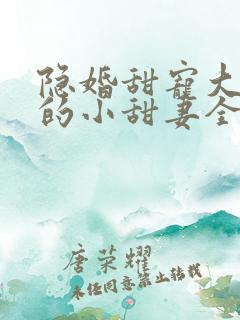 隐婚甜宠大
的小甜妻全
唐荣耀
未经同意禁止转载